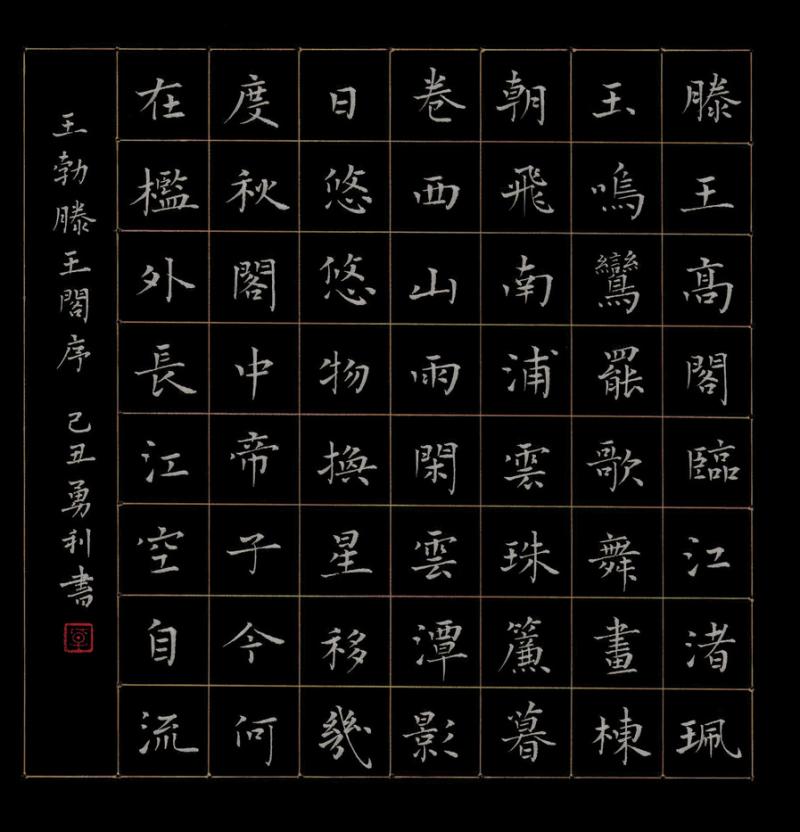 滕王高閣臨江渚珮
玉鳴鸞罷歌舞畫棟
朝飛南浦雲珠簾暮
卷西山雨閑雲潭影
日悠悠物換星移幾
度秋閣中帝子今何
在檻外長江空自流
王勃滕王閣序 己丑勇利書